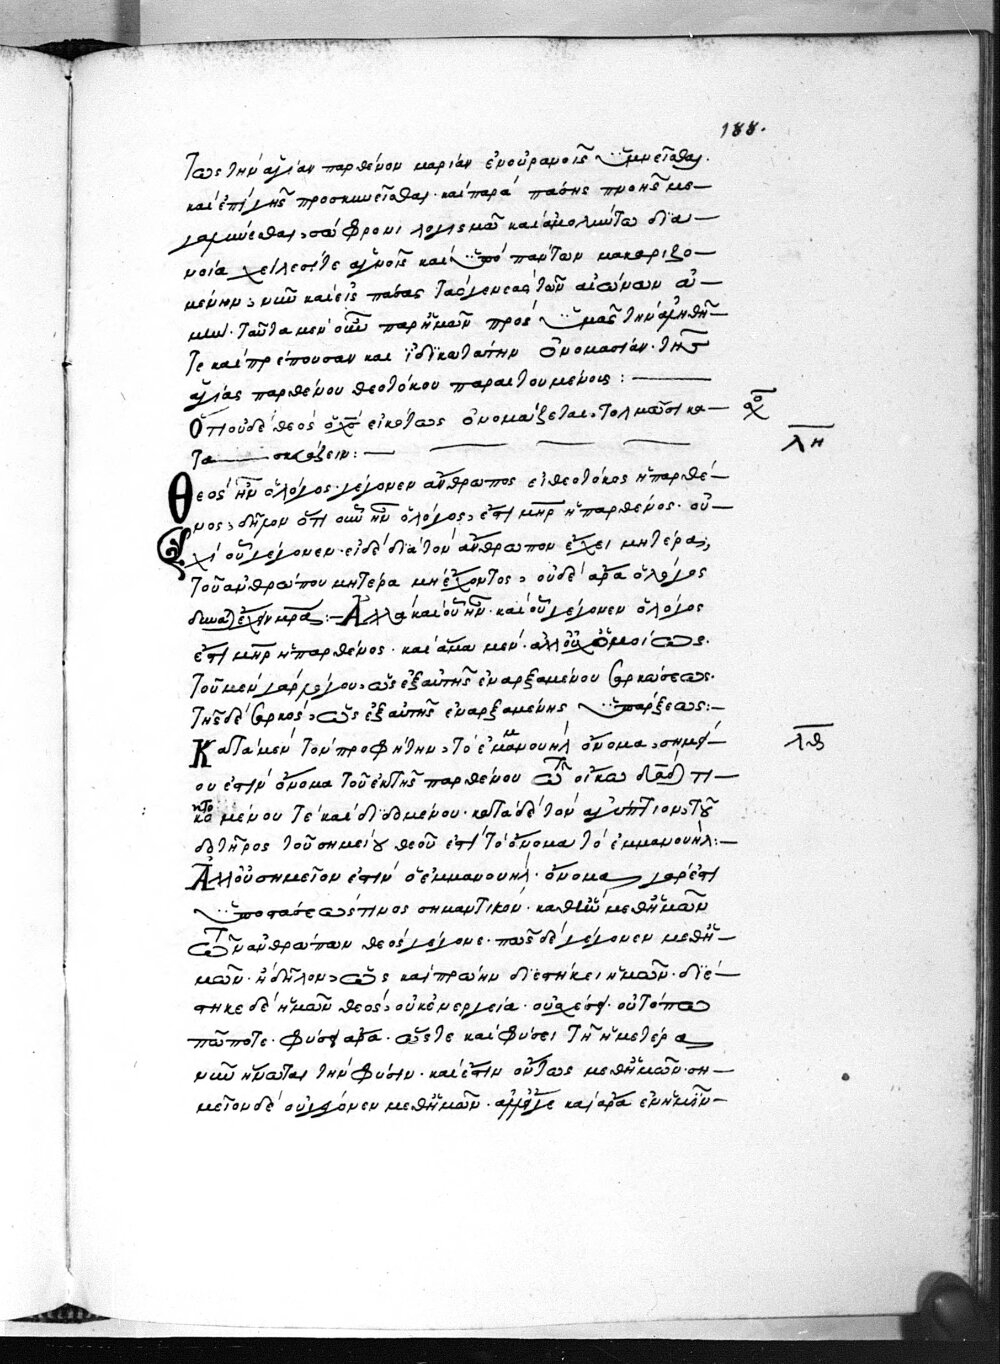 188.
τως την αγίαν παρθένον μαρίαν ἐν οὐρανοῖς ὑμνεῖσθαι.
καὶ ἐπὶ γῆς προσκυνεῖσθαι· καὶ παρὰ πάσης πνοῆς με–
γαλύνεσθαι, σώφρονι λογισμῶ καὶ ἀμολύντω δϊα–
νοία χείλεσί τε ἁγνοῖς καὶ ὑπὸ πάντων μακαριζο–
μένην, νῦν καὶ εἰς πάσας τὰς γενεὰς τῶν αἰώνων ἀ–
μήν· ταῦτα μὲν οὖν παρ ἡμῶν πρὸς ὑμᾶς τὴν ἀληθῆ–
τε καὶ πρέπουσαν καὶ ϊδϊκωτάτην ὀνομασίαν τῆς
ἁγίας παρθένου θεοτόκου παραιτουμένους :—
Ὅτι οὐδὲ θεὸς ὁ χς εἰκότως ὀνομάζεται, τολμῶσι κα–
τα σκευάζειν :—
λη
Θεὸς ἦν ὁ λόγος· γέγονεν ἄνθρωπος εἰ θεοτόκος ἡ παρθέ–
νος, δῆλον ὅτι οὗ ἦν ὁ λόγος, ἐστὶ μηρ ἡ παρθένος· οὐ–
χὶ οὗ γέγονεν· εἰ δὲ δϊὰ τὸν ἄνθρωπον ἔχει μητέρα,
τοῦ ἀνθρώπου μητέρα μὴ ἔχοντος, οὐδὲ ἄρα ὁ λόγος
δύναται ἔχειν μρα :— Ἀλλὰ καὶ οὗ ἦν· καὶ οὗ γέγονεν ὁ λόγος
ἐστὶ μηρ ἡ παρθένος· καὶ ἅμα μέν· ἀλλ οὐχ ὁμοίως.
τοῦ μὲν γὰρ λόγου, ὡς ἐξ αὐτῆς ἐναρξαμένου σαρκώσεως.
τῆς δὲ σαρκὸς, ὡς ἐξ αὐτῆς ἐναρξαμένης ὑπάρξεως :–
λθ
Κατὰ μὲν τὸν προφήτην, τὸ ἐμμανουὴλ ὄνομα, σημεί–
ου ἐστὶν ὄνομα τοῦ ἐκ τῆς παρθένου τῶ οἴκω δαδ τι–
κτομένου τε καὶ δϊδομένου· κατὰ δὲ τὸν αἰγύπτιον, τοῦ
δοτῆρος τοῦ σημείου θεοῦ ἐστὶ τὸ ὄνομα τὸ ἐμμανουήλ :–
Ἀλλ οὐ σημεῖον ἐστὶν ὁ ἐμμανουήλ· ὄνομα γάρ ἐστι
ὑποστάσεως τινος σημαντικόν· καθὸ μεθ ἡμῶν
τῶν ἀνθρώπων θεὸς γέγονε· πῶς δὲ γέγονεν μεθ ἡ–
μῶν· ἢ δῆλον, ὡς καὶ πρώην δϊεστήκει ἡμῶν· δϊέ–
στηκε δὲ ἡμῶν θεὸς, οὐκ ἐνεργεία· οὐ σχέσει· οὐ τόπω
πώποτε· φύσει ἄρα· ὥστε καὶ φύσει τῆ ἡμετέρα
νῦν ἥνωται τὴν φύσιν· καὶ ἔστιν οὕτως μεθ ἡμῶν· ση–
μεῖον δὲ οὐ γέγονεν μεθ ἡμῶν· καὶ ἄρα ἐν ἡμῖν–